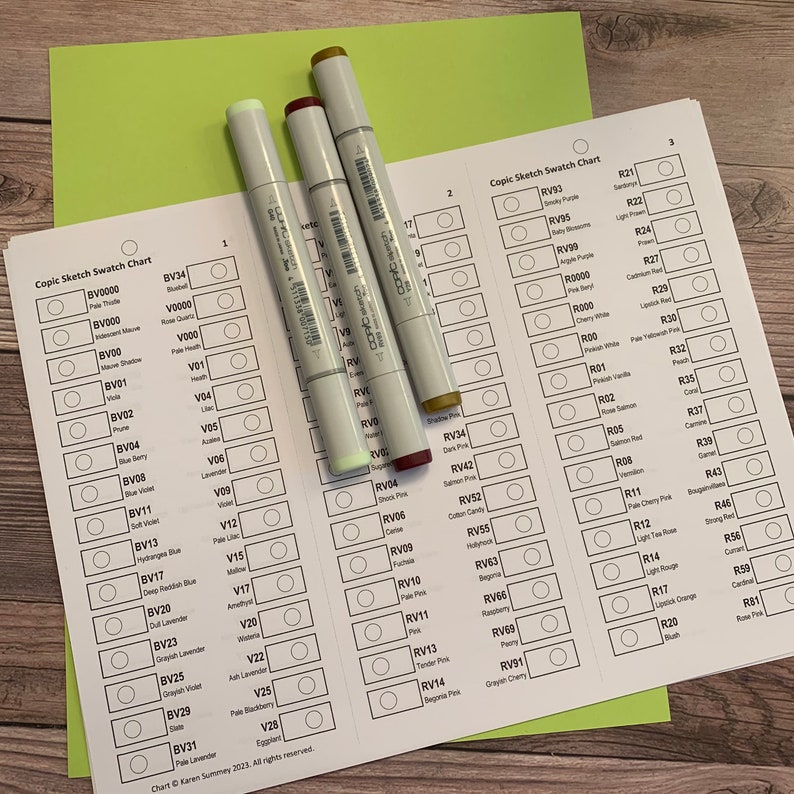 Copic Sketch Swatch Chart
1
BV0000
Pale Thistle
BV000
Iridescent Mauve
BV00
Mauve Shadow
BV01
Viola
BV02
Prune
BV04
Blue Berry
BV08
Blue Violet
BV11
Soft Violet
BV13
Hydrangea Blue
BV17
Deep Reddish Blue
BV20
Dull Lavender
BV23
Grayish Lavender
BV25
Grayish Violet
BV29
Slate
BV31
Pale Lavender
BV34
Bluebell
V0000
Rose Quartz
V000
Pale Heath
V01
Heath
V04
Lilac
V05
Azalea
V06
Lavender
V09
Violet
V12
Pale Lilac
V15
Mallow
V17
Amethyst
V20
Wisteria
V22
Ash Lavender
V25
Pale Blackberry
V28
Eggplant
Chart © Karen Summey 2023. All rights reserved.
2
RV04
Shock Pink
RV06
Cerise
RV09
Fuchsia
RV10
Pale Pink
RV11
Pink
RV13
Tender Pink
RV14
Begonia Pink
Shadow Pink
RV34
Dark Pink
RV42
Salmon Pink
RV52
Cotton Candy
RV55
Hollyhock
RV63
Begonia
RV66
Raspberry
RV69
Peony
RV91
Grayish Cherry
Copic Sketch Swatch Chart
3
RV93
Smoky Purple
RV95
Baby Blossoms
RV99
Argyle Purple
R0000
Pink Beryl
R000
Cherry White
R00
Pinkish White
R01
Pinkish Vanilla
R02
Rose Salmon
R05
Salmon Red
R08
Vermilion
R11
Pale Cherry Pink
R12
Light Tea Rose
R14
Light Rouge
R17
Lipstick Orange
R20
Blush
R21
Sardonyx
R22
Light Prawn
R24
Prawn
R27
Cadmium Red
R29
Lipstick Red
R30
Pale Yellowish Pink
R32
Peach
R35
Coral
R37
Carmine
R39
Garnet
R43
Bougainvillaea
R46
Strong Red
R56
Currant
R59
Cardinal
R81
Rose Pink
G40
COPIC sketch
MADE IN JAPAN
.Too
4 511338 007150
COPIC sketch
COPIC sketch